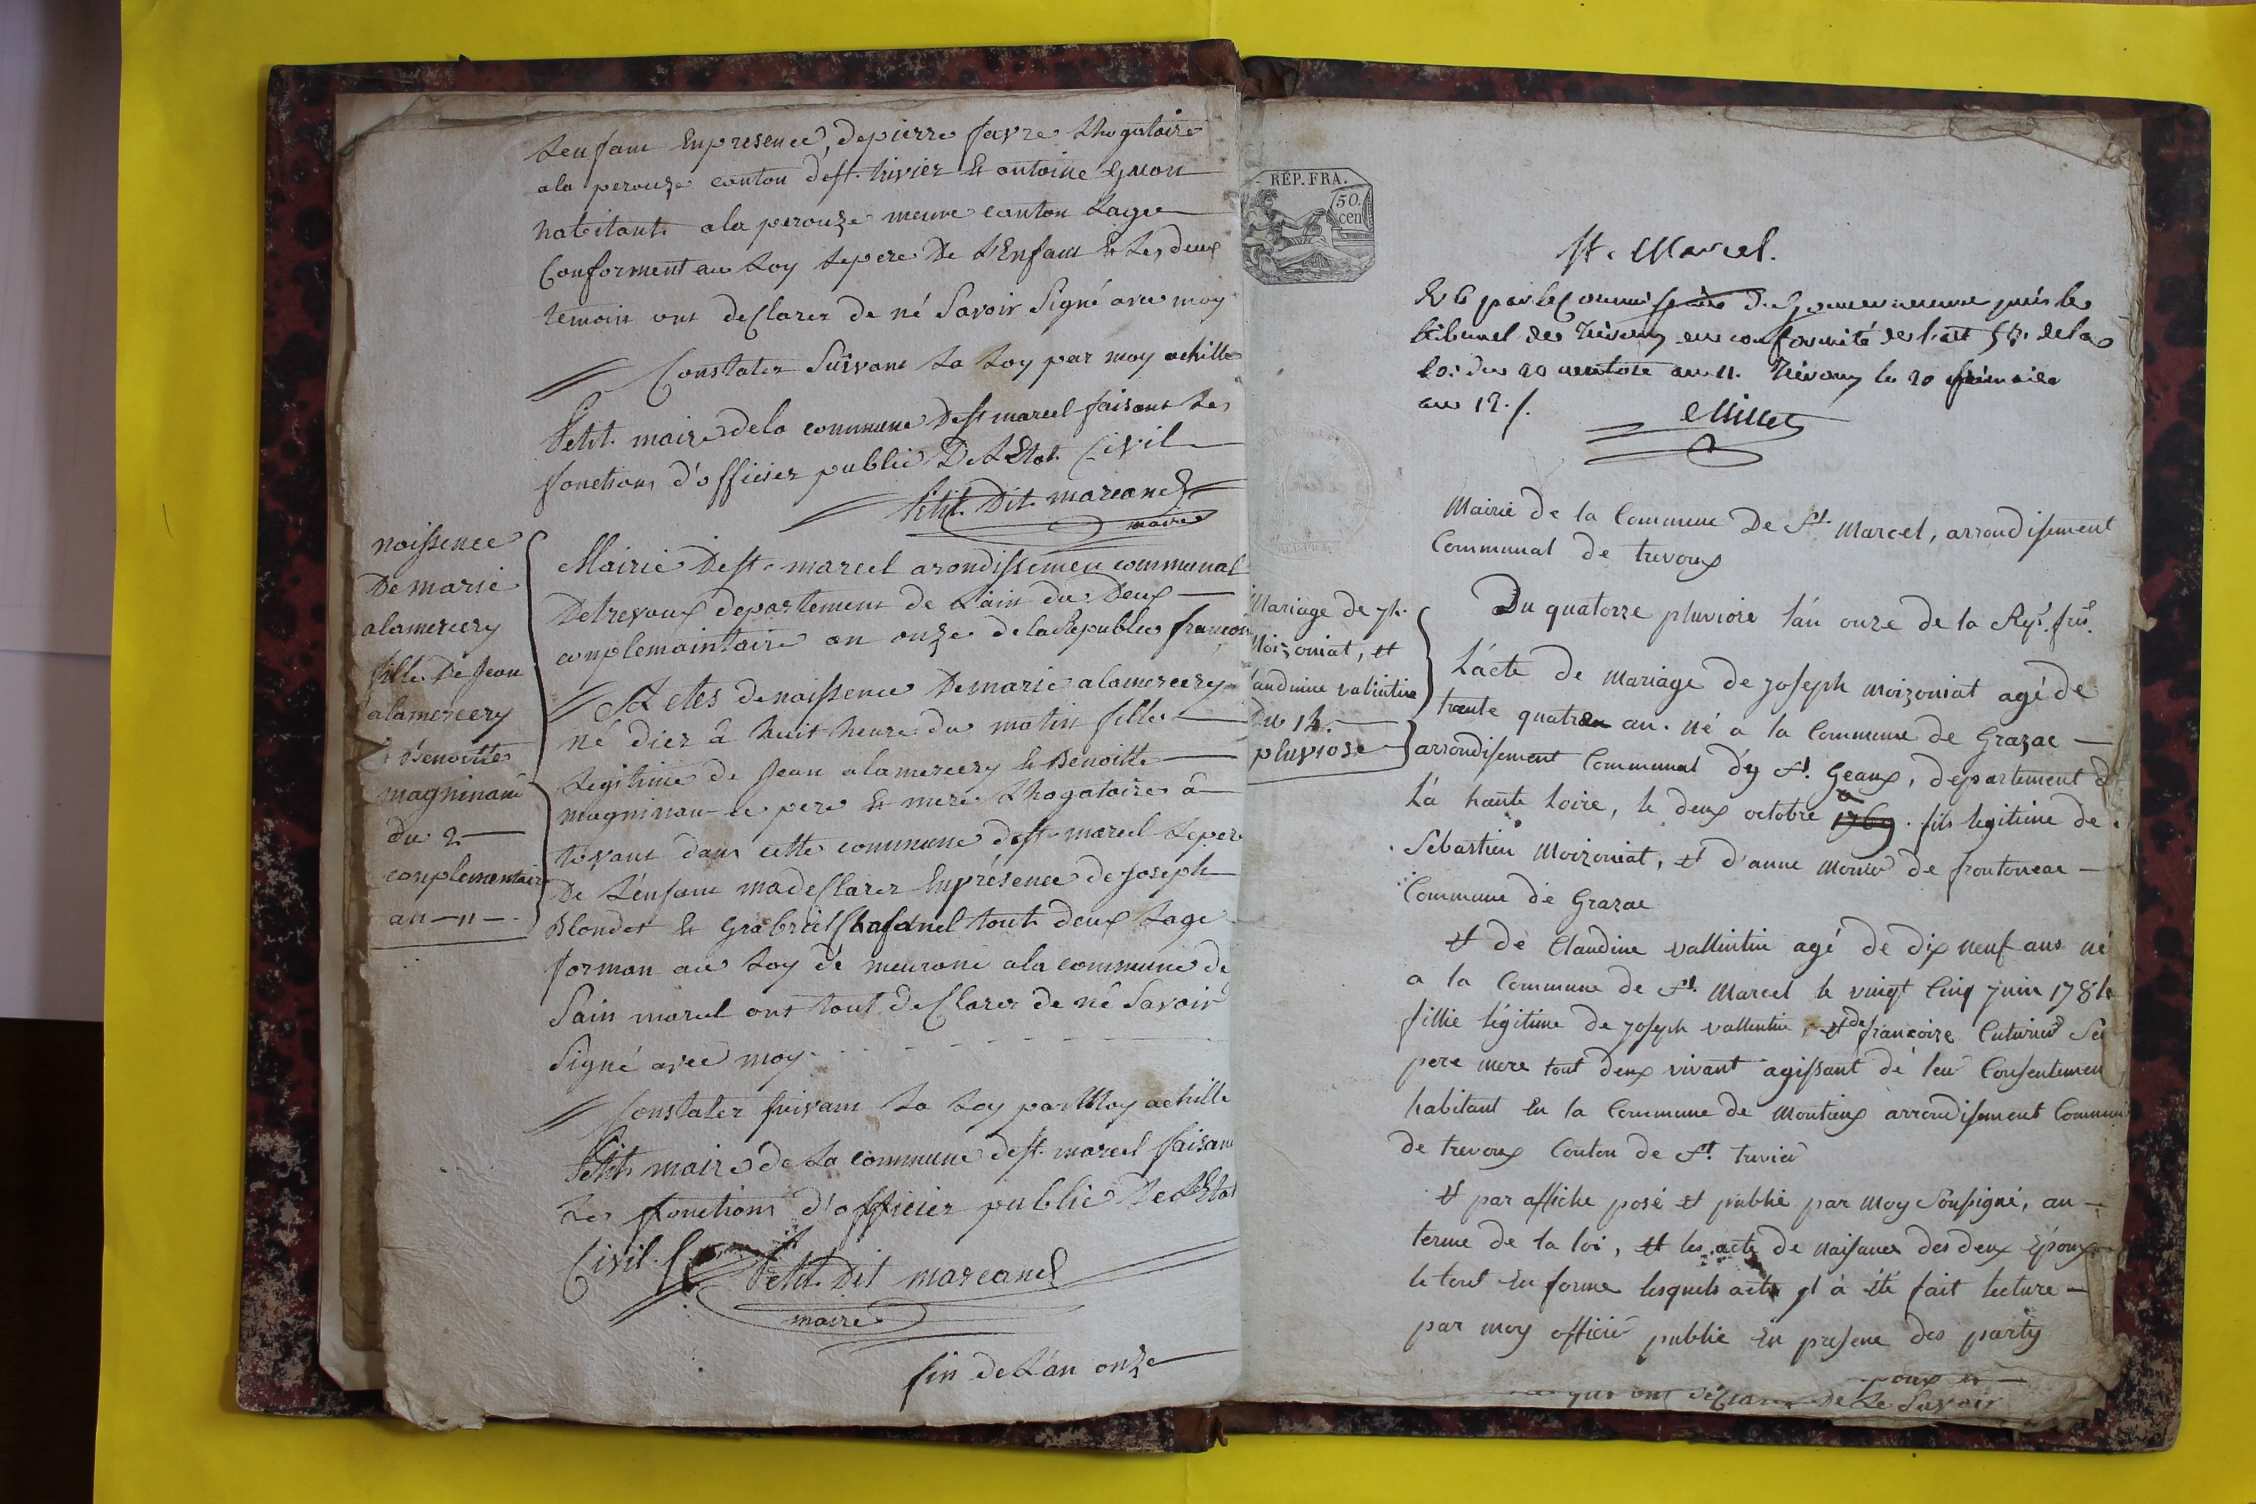 Lenfant En presence, de pierre favre Lhogataire
a la perouze canton de st. trivier Et antoine guon
habitants a la perouze meme canton Lagee
Conforment au Loy Le pere De L'Enfant Et Les deux
temoin ont deClarer de né Savoir Signé avec moy
Constater Suivant La Loy par moy achille
Petit maire de la commune De st marcel faisant Les
fonctions d'officier public De L'Etat Civil
Petit Dit marcand
maire
naissence
De marie
alamercery
fille De Jean
alamercery
Et Benoitte
magninand
du 2
conplementair
an 11
Mairie De st marcel arondissemen communal
De trevoux departement de L'ain du Deux
conplemaintaire an onze de la Republic francois
Actes de naissence De marie alamercery
né dier à huit heure du matin fille
Legitime de Jean alamercery Et Benoitte
magninan Le pere Et mere Lhogataire à
tévant dans cette commune de st marcel Le per
De L'enfant ma deClarer En présence de Joseph
Blondet Et Grabriel Chafanel tout deux Lage
forman au Loy dé meurant a la commune de
Sain marcel ont tout deClarer de né Savoir
Signé avec moy
Constater suivant La Loy par Moy achille
Petit maire de La commune de st marcel faisant
Les fonctions d'officier public De L'Etat
Civil
Petit Dit marcand
maire
fin De L'an onze
RÉP. FRA.
50 cen
St. Marcel.
par le Commissaire du Gouvernement près le
tribunal de Trévoux en conformité de l'art de la
loi du 20 ventose an 11. Trévoux le 20 frimaire
an 12 /.
Millet
Mairie de la Commune De St. Marcel, arrondisement
Communal de trevoux
Mariage de jh.
Moizoniat, et
Claudinne valintine
Du 14
pluviose
Du quatorze pluviose l'an onze de la Rep. frse.
L'acte de Mariage de joseph Moizoniat agé de
trante quatre an. né a la Commune de Grazac
arrondisement Communal d'y St. Geaux, departement d
La haute Loire, le deux octobre 1769. fils legitime de
Sébastien Moizoniat, et d'anne Monier de frontoneac
Commune de Grazac
et de Claudine vallintin agé de dix neuf ans né
a la Commune de St. Marcel le vingt Cinq juin 1784
fillie légitime de joseph vallintin, et de francoise Cuturier Se
pere mere tout deux vivant agissant dé leu Consentemen
habitant En la Commune de Montieux arrondisment Commun
de trevoux Conton de St. trivier
et par affiche posé et publié par moy Sousigné, au
terme de la loi, et les acte de naisance des deux Epoux
le tout En forme lesquels acte jl à été fait lecture
par moy officié publie En presene des party
que ont déClarer De Le Savoir